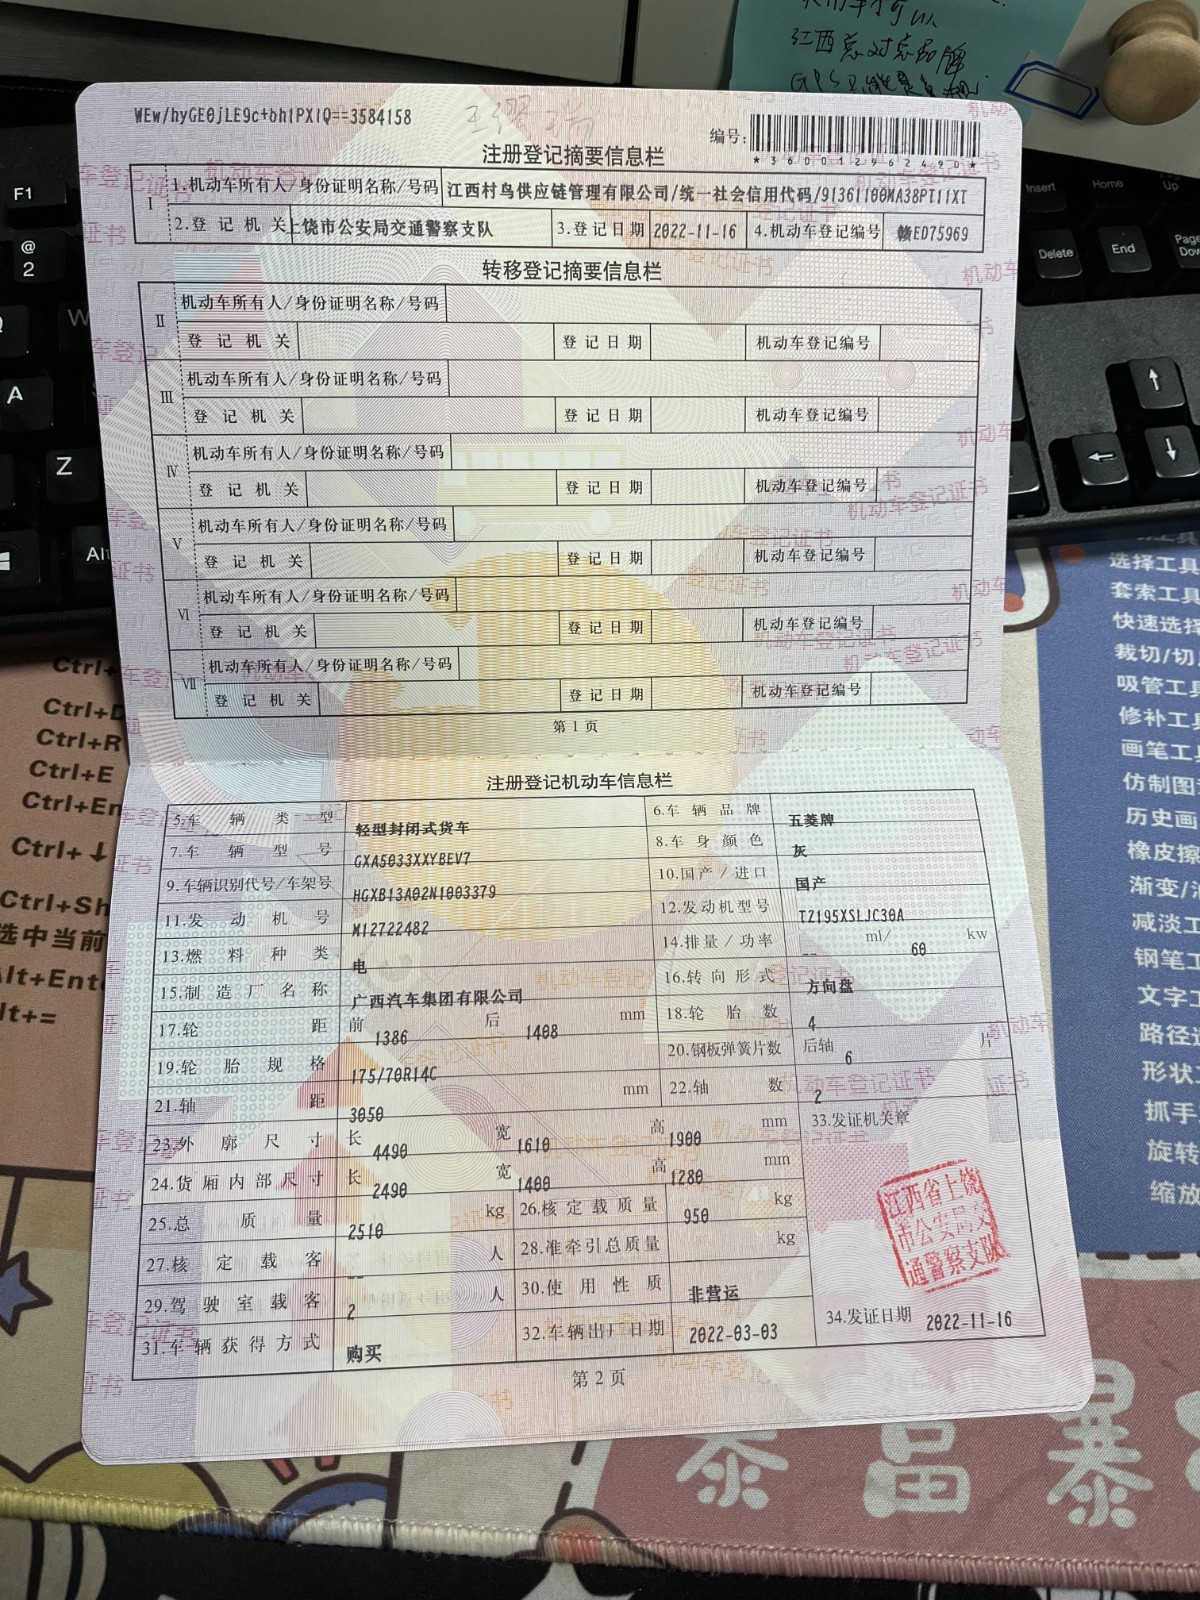 不用車才可以
江西
WEw/hyGE0jLE9c+bh1PX1Q==3584158
编号:
*360012962490*
注册登记摘要信息栏
Ⅰ
1.机动车所有人/身份证明名称/号码 江西村鸟供应链管理有限公司/统一社会信用代码/91361100MA38PT11XT
2.登记机关 上饶市公安局交通警察支队 3.登记日期 2022-11-16 4.机动车登记编号 赣ED75969
转移登记摘要信息栏
Ⅱ 机动车所有人/身份证明名称/号码
登记机关 登记日期 机动车登记编号
Ⅲ 机动车所有人/身份证明名称/号码
登记机关 登记日期 机动车登记编号
Ⅳ 机动车所有人/身份证明名称/号码
登记机关 登记日期 机动车登记编号
Ⅴ 机动车所有人/身份证明名称/号码
登记机关 登记日期 机动车登记编号
Ⅵ 机动车所有人/身份证明名称/号码
登记机关 登记日期 机动车登记编号
Ⅶ 机动车所有人/身份证明名称/号码
登记机关 登记日期 机动车登记编号
第1页
注册登记机动车信息栏
5.车辆类型 轻型封闭式货车 6.车辆品牌 五菱牌
7.车辆型号 GXA5033XXYBEV7 8.车身颜色 灰
9.车辆识别代号/车架号 HGXB13A02N1003379 10.国产/进口 国产
11.发动机号 M12722482 12.发动机型号 TZ195XSLJC30A
13.燃料种类 电 14.排量/功率 -- ml/ 60 kw
15.制造厂名称 广西汽车集团有限公司 16.转向形式 方向盘
17.轮距 前 1386 后 1408 mm 18.轮胎数 4
19.轮胎规格 175/70R14C 20.钢板弹簧片数 后轴 6 片
21.轴距 3050 mm 22.轴数 2
23.外廓尺寸 长 4490 宽 1610 高 1900 mm 33.发证机关章
24.货厢内部尺寸 长 2490 宽 1400 高 1280 mm
25.总质量 2510 kg 26.核定载质量 950 kg
27.核定载客 -- 人 28.准牵引总质量 kg
29.驾驶室载客 2 人 30.使用性质 非营运
31.车辆获得方式 购买 32.车辆出厂日期 2022-03-03 34.发证日期 2022-11-16
江西省上饶
市公安局交
通警察支队
第2页
F1
@
2
W
A
Z
Alt
Insert
Home
Delete
End
Ctrl+D
Ctrl+R
Ctrl+E
Ctrl+↓
选中当前
选择工具
裁切/切
吸管工具
修补工具
画笔工具
仿制图
历史画
橡皮擦
渐变/
减淡工
钢笔工
文字工
路径选
形状工
抓手
旋转
缩放
暴富暴